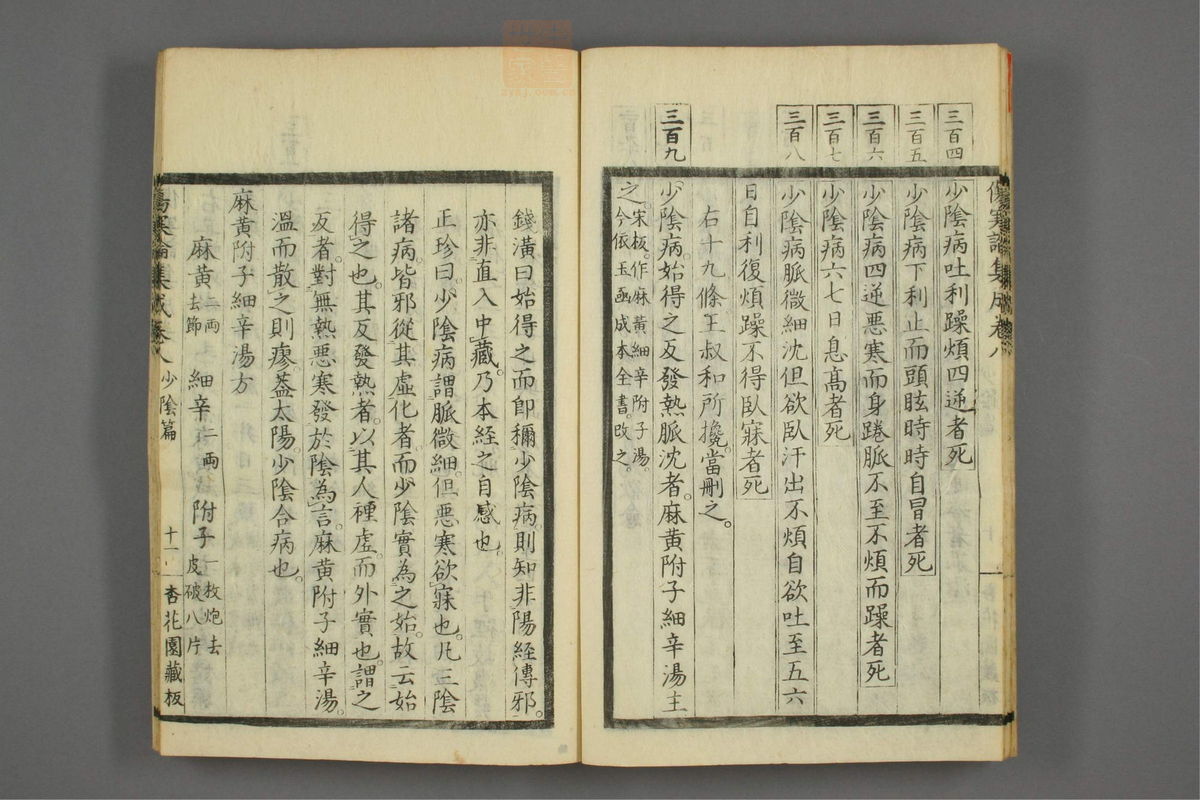 傷寒論集成卷八
三百四
少陰病吐利躁煩四逆者死
三百五
少陰病下利止而頭眩時時自冒者死
三百六
少陰病四逆惡寒而身踡脈不至不煩而躁者死
三百七
少陰病六七日息高者死
三百八
少陰病脈微細沈但欲臥汗出不煩自欲吐至五六
日自利復煩躁不得臥寐者死
右十九條王叔和所攙當刪之。
三百九
少陰病始得之反發熱脈沈者。麻黃附子細辛湯主
之。宋板。作麻黃細辛附子湯。今依玉函成本全書。改之。
錢潢曰始得之而卽稱少陰病。則知非陽經傳邪。
亦非直入中藏。乃本經之自感也。
正珍曰。少陰病謂脈微細。但惡寒欲寐也。凡三陰
諸病。皆邪從其虛化者。而少陰實為之始。故云始
得之也。其反發熱者。以其人裡虛。而外實也。謂之
反者。對無熱惡寒發於陰為言。麻黃附子細辛湯。
溫而散之則瘳。蓋太陽少陰合病也。
麻黃附子細辛湯方
麻黃二兩去節 細辛二兩 附子一枚炮去皮破八片
傷寒論集成卷八 少陰篇 十一 杏花園藏板